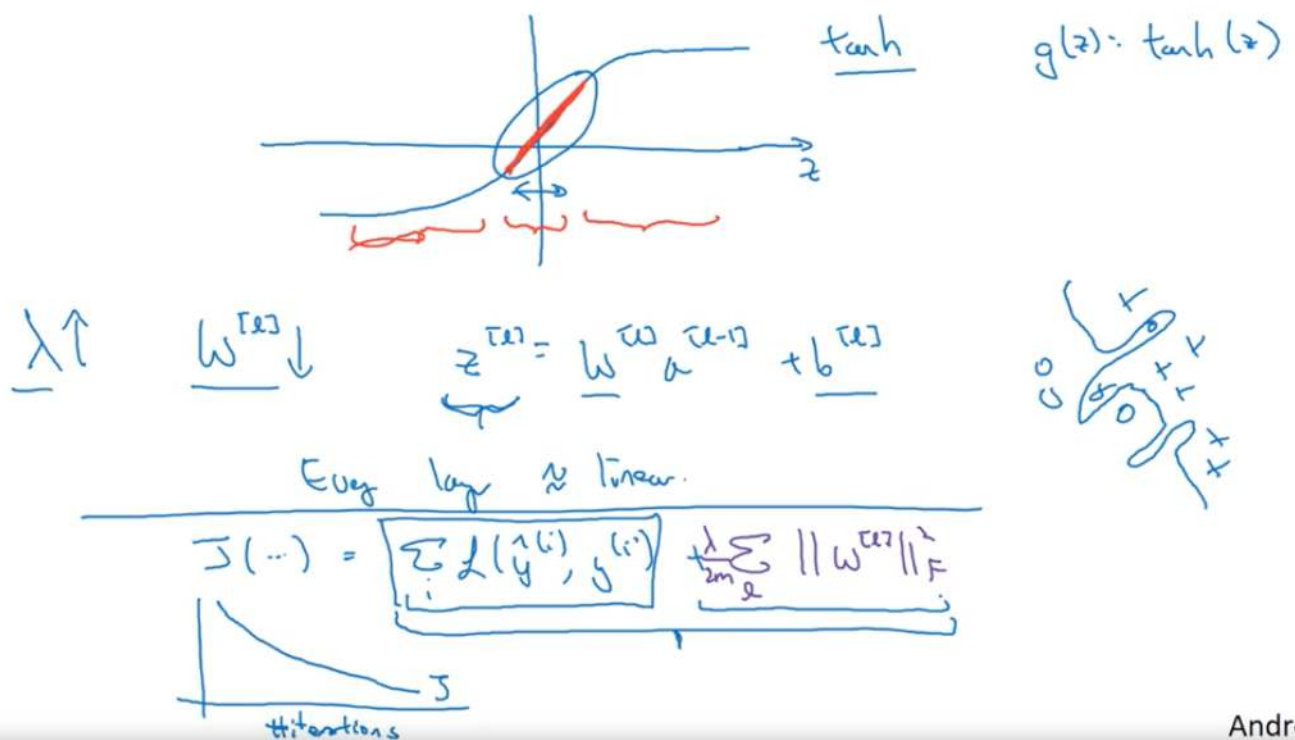 tanh g(z): tanh(z)
z
λ↑ W^[l]↓ z^[l] = W^[l] a^[l-1] + b^[l]
Every layer ≈ linear.
J(...) = Σ_i L(ŷ^(i), y^(i)) + λ/2m Σ_l ||W^[l]||²_F
J
#iterations
Andr